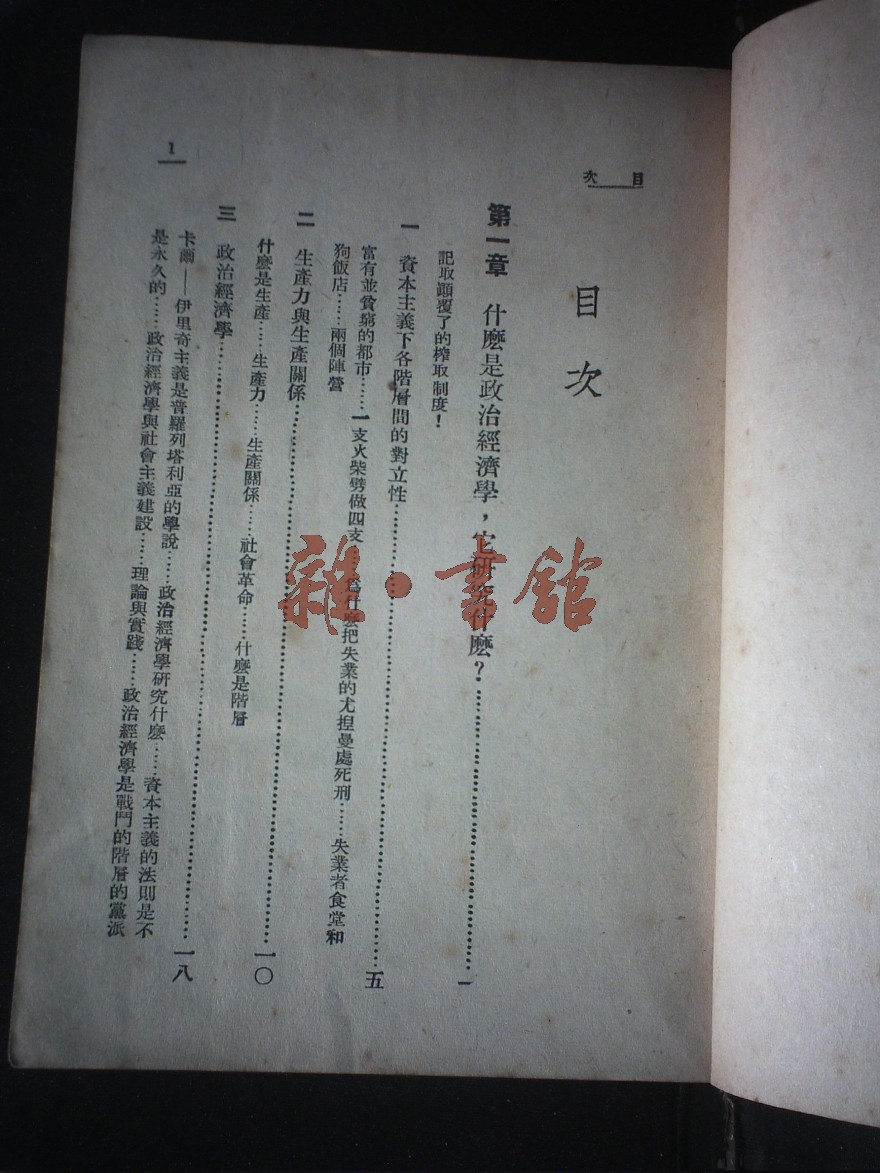 目次
目次
第一章 什麽是政治經濟學，它研究什麽？……一
記取顚覆了的榨取制度！
一 資本主義下各階層間的對立性……五
富有並貧窮的都市……一支火柴劈做四支……爲什麽把失業的尤揑曼處死刑……失業者食堂和
狗飯店……兩個陣營
二 生產力與生產關係……一〇
什麽是生產……生產力……生產關係……社會革命……什麽是階層
三 政治經濟學……一八
卡爾——伊里奇主義是普羅列塔利亞的學說……政治經濟學研究什麽……資本主義的法則是不
是永久的……政治經濟學與社會主義建設……理論與實踐……政治經濟學是戰鬥的階層的黨派
1
雜·書館